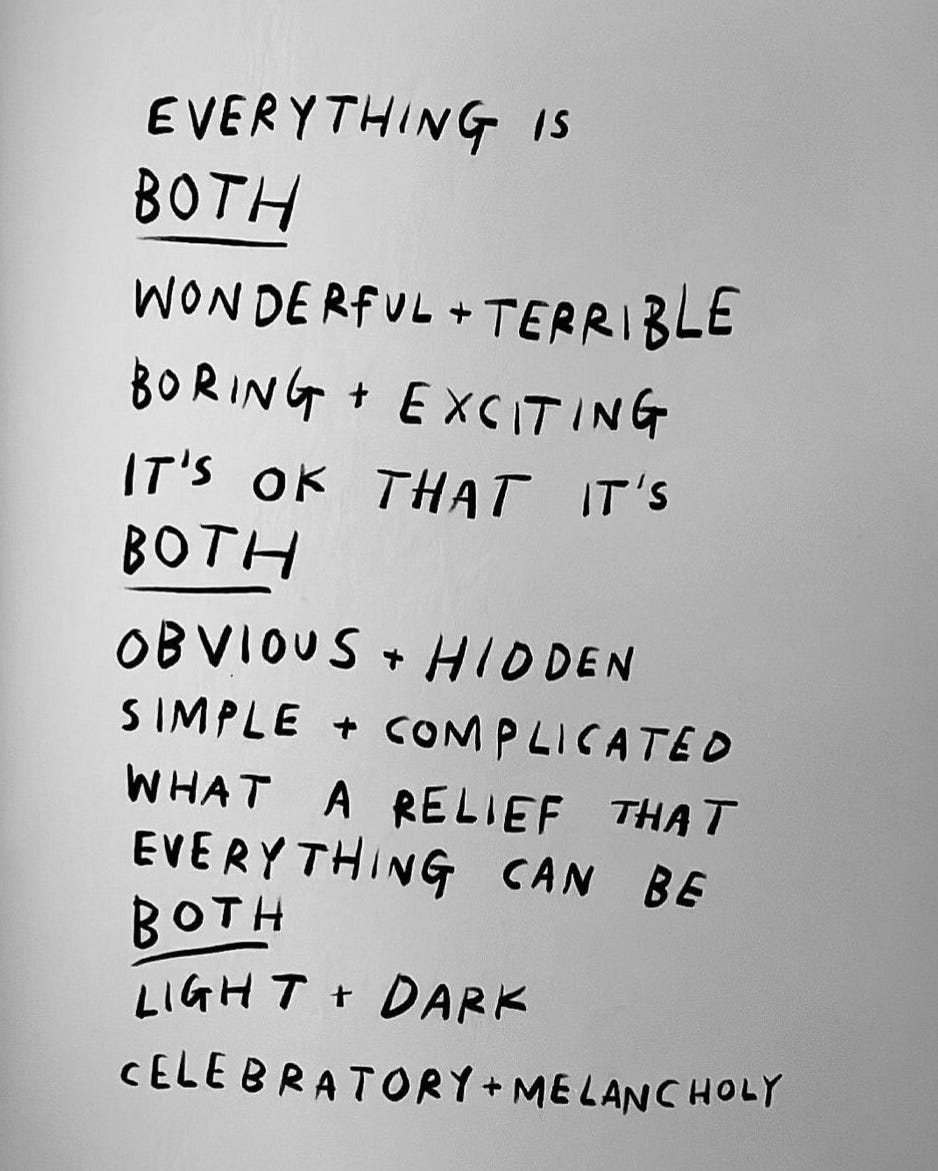 EVERYTHING IS
BOTH
WONDERFUL + TERRIBLE
BORING + EXCITING
IT'S OK THAT IT'S
BOTH
OBVIOUS + HIDDEN
SIMPLE + COMPLICATED
WHAT A RELIEF THAT
EVERYTHING CAN BE
BOTH
LIGHT + DARK
CELEBRATORY + MELANCHOLY